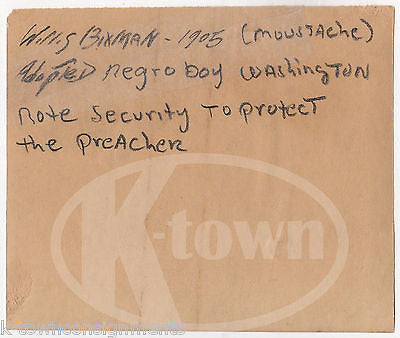 Willis BIXMAN - 1905 (MOUSTAChe)
Adopted negro boy WAShingTON
note Security To protect
the preAcher
K-town
k-townconsignments